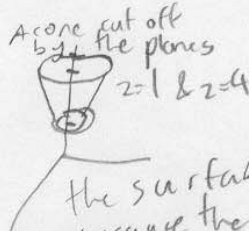 A cone cut off
by the planes
z=1 & z=4
the surfa
because the